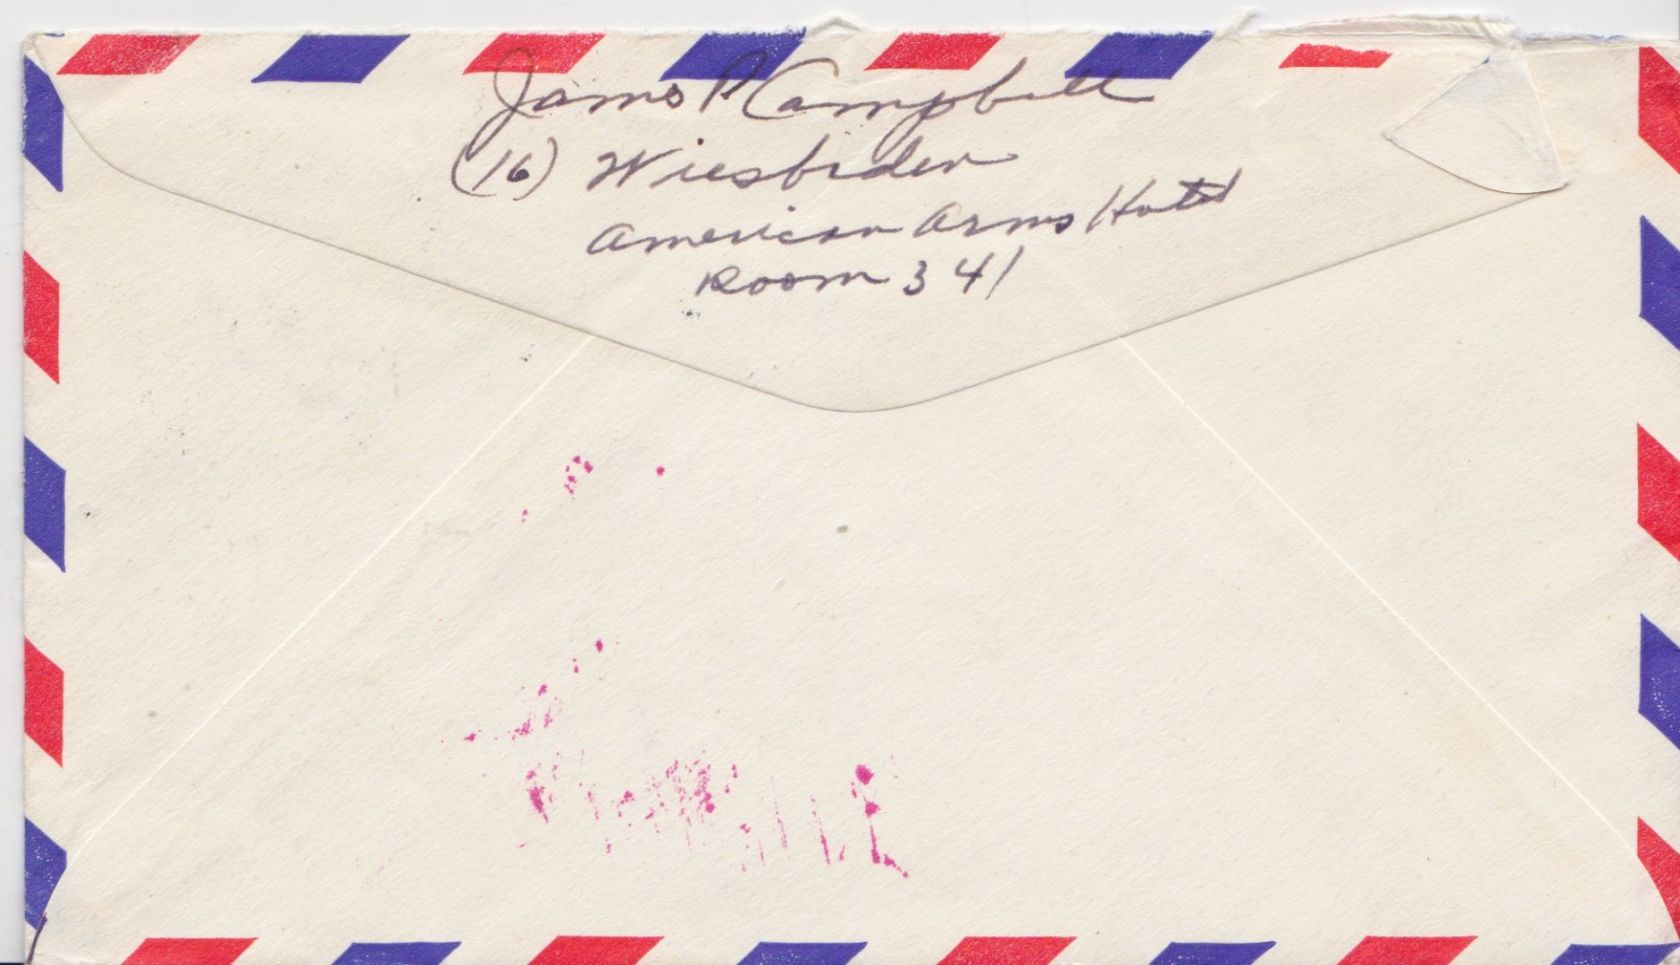 James P Campbell
(16) Wiesbaden
American Arms Hotel
Room 341